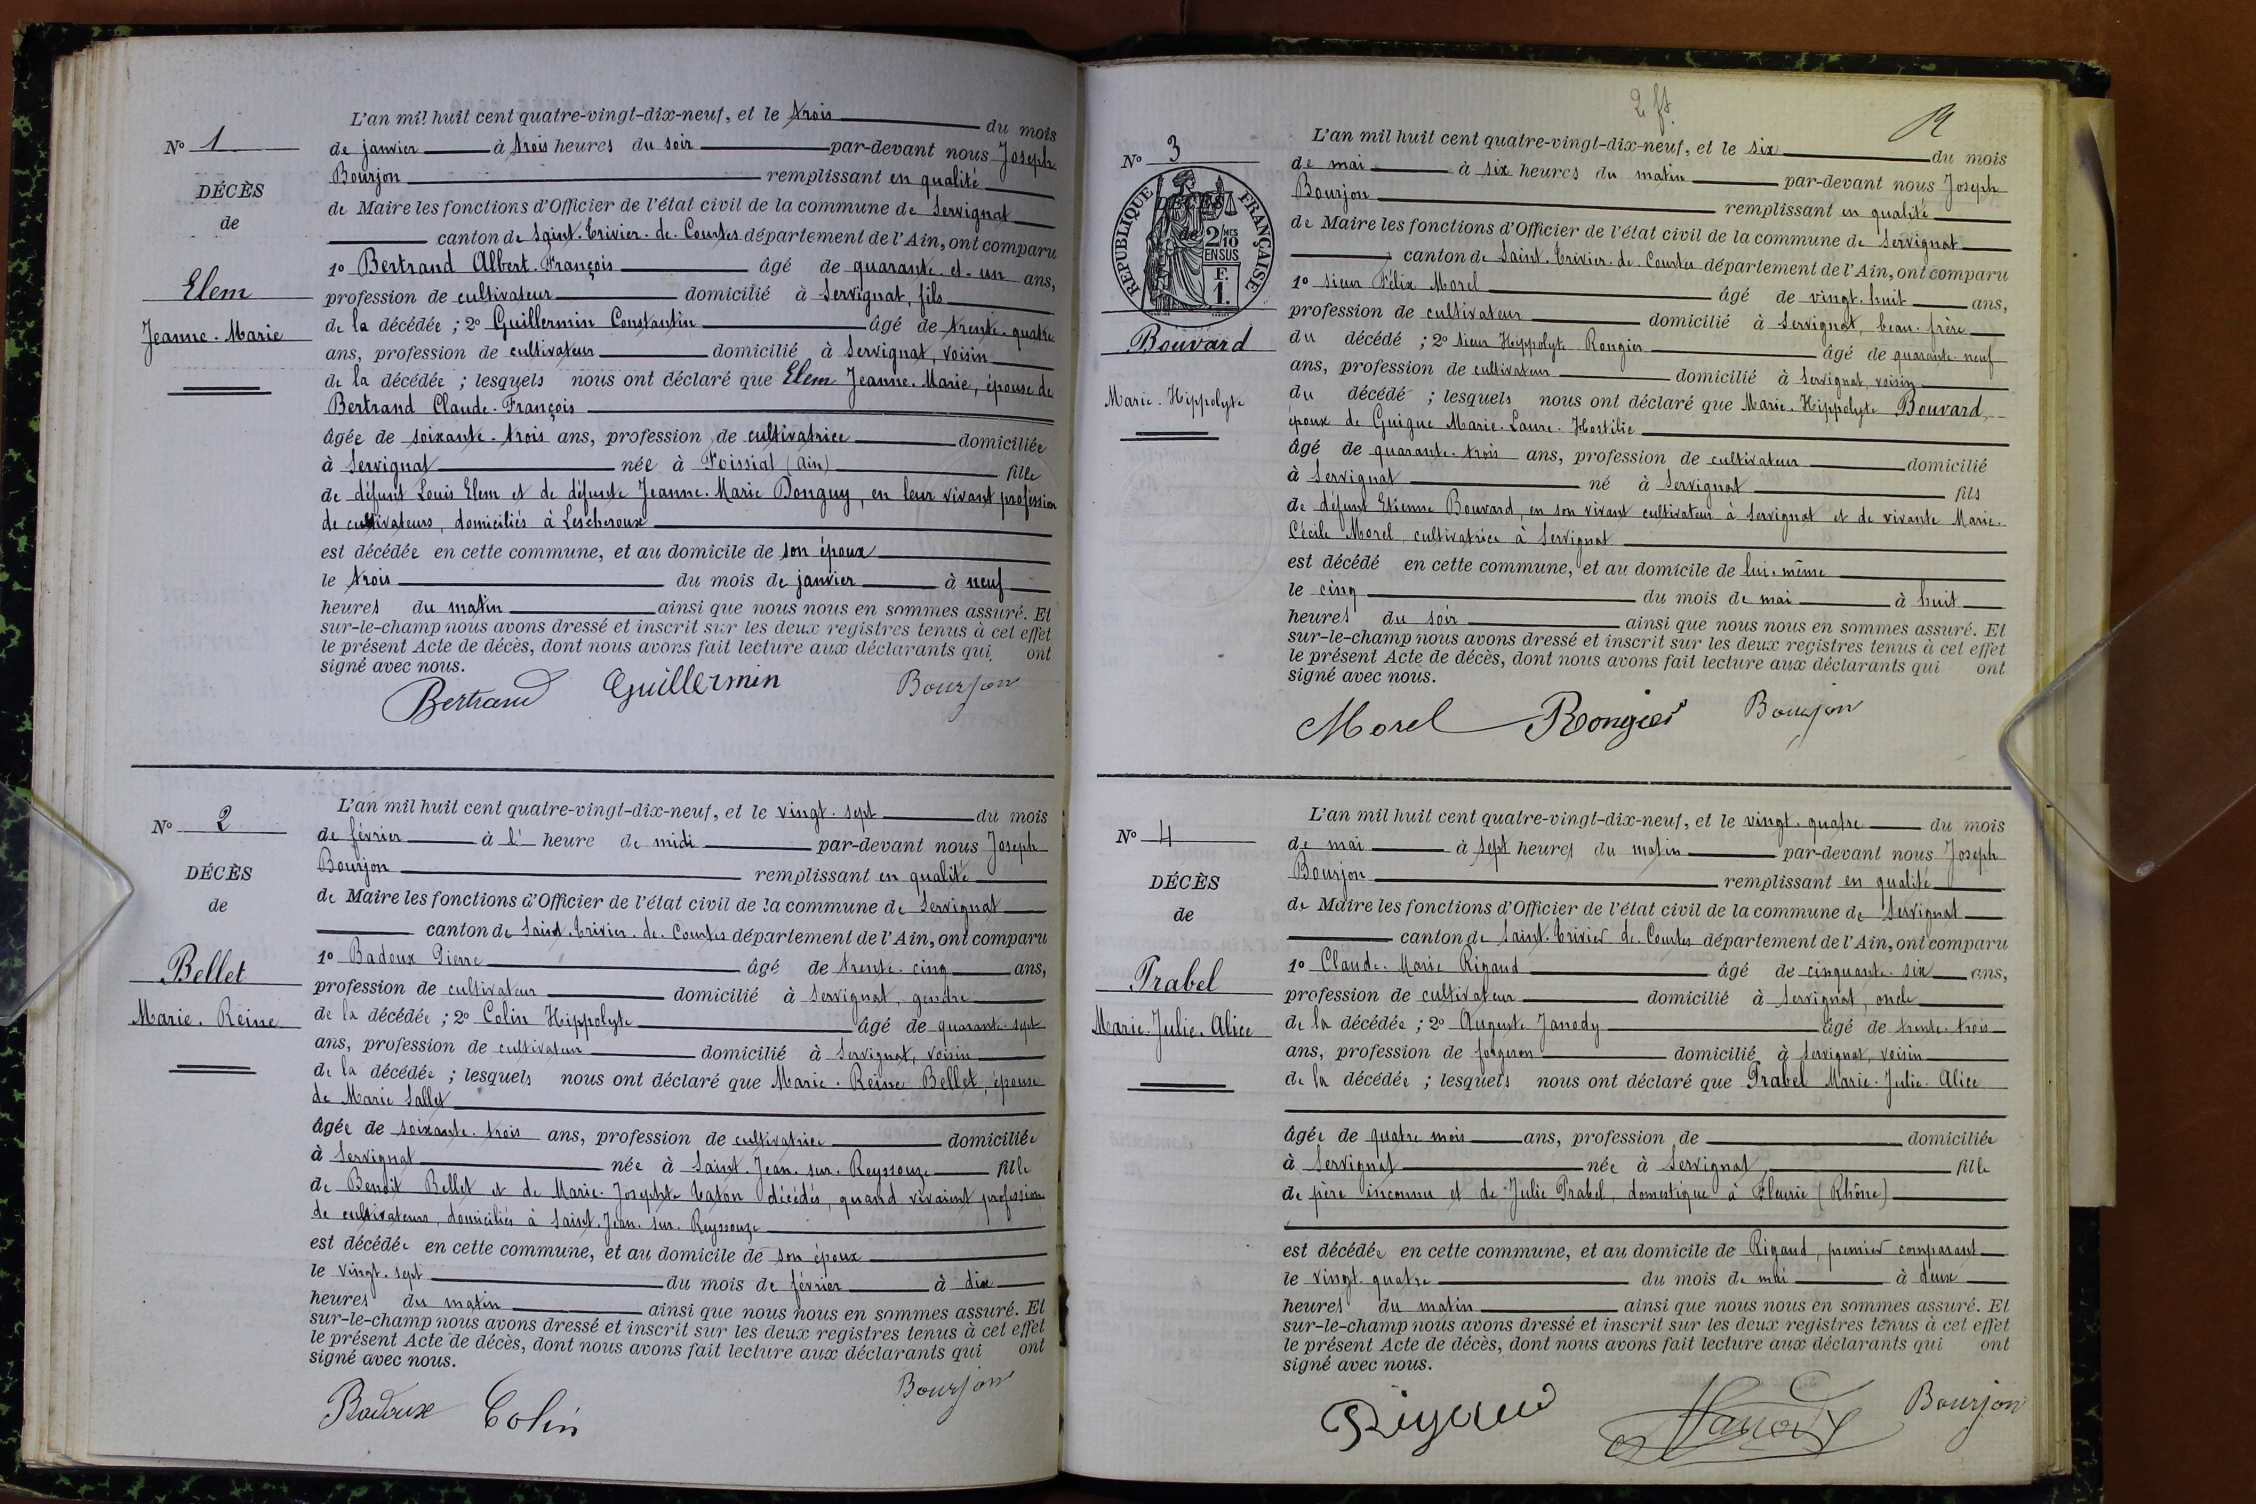 N° 1
DÉCÈS
de
Elem
Jeanne-Marie
L'an mil huit cent quatre-vingt-dix-neuf, et le trois du mois
de janvier à trois heures du soir par-devant nous Joseph
Bourjon remplissant en qualité
de Maire les fonctions d'Officier de l'état civil de la commune de Servignat
canton de Saint-Trivier-de-Courtes département de l'Ain, ont comparu
1° Bertrand Albert-François âgé de quarante-et-un ans,
profession de cultivateur domicilié à Servignat, fils
de la décédée ; 2° Guillermin Constantin âgé de trente-quatre
ans, profession de cultivateur domicilié à Servignat, voisin
de la décédée ; lesquels nous ont déclaré que Elem Jeanne-Marie, épouse de
Bertrand Claude-François
âgée de soixante-trois ans, profession de cultivatrice domiciliée
à Servignat née à Foissiat (Ain) fille
de défunt Louis Elem et de défunte Jeanne-Marie Donguy, en leur vivant profession
de cultivateurs, domiciliés à Lescheroux
est décédée en cette commune, et au domicile de son époux
le trois du mois de janvier à neuf
heures du matin ainsi que nous nous en sommes assuré. Et
sur-le-champ nous avons dressé et inscrit sur les deux registres tenus à cet effet
le présent Acte de décès, dont nous avons fait lecture aux déclarants qui ont
signé avec nous.
Bertrand Guillermin Bourjon
N° 2
DÉCÈS
de
Bellet
Marie-Reine
L'an mil huit cent quatre-vingt-dix-neuf, et le vingt-sept du mois
de février à l' heure de midi par-devant nous Joseph
Bourjon remplissant en qualité
de Maire les fonctions d'Officier de l'état civil de la commune de Servignat
canton de Saint-Trivier-de-Courtes département de l'Ain, ont comparu
1° Badoux Pierre âgé de trente-cinq ans,
profession de cultivateur domicilié à Servignat, gendre
de la décédée ; 2° Colin Hippolyte âgé de quarante-sept
ans, profession de cultivateur domicilié à Servignat, voisin
de la décédée ; lesquels nous ont déclaré que Marie-Reine Bellet, épouse
de Marie Sallet
âgée de soixante-trois ans, profession de cultivatrice domiciliée
à Servignat née à Saint-Jean-sur-Reyssouze fille
de Benoit Bellet et de Marie-Josephte Caton décédés, quand vivaient profession
de cultivateurs, domiciliés à Saint-Jean-sur-Reyssouze
est décédée en cette commune, et au domicile de son époux
le vingt-sept du mois de février à dix
heures du matin ainsi que nous nous en sommes assuré. Et
sur-le-champ nous avons dressé et inscrit sur les deux registres tenus à cet effet
le présent Acte de décès, dont nous avons fait lecture aux déclarants qui ont
signé avec nous.
Badoux Colin Bourjon
2 ft
N° 3
DÉCÈS
de
RÉPUBLIQUE FRANÇAISE
2/10 MES
EN SUS
F.
1.
Bouvard
Marie-Hippolyte
L'an mil huit cent quatre-vingt-dix-neuf, et le six du mois
de mai à six heures du matin par-devant nous Joseph
Bourjon remplissant en qualité
de Maire les fonctions d'Officier de l'état civil de la commune de Servignat
canton de Saint-Trivier-de-Courtes département de l'Ain, ont comparu
1° sieur Félix Morel âgé de vingt-huit ans,
profession de cultivateur domicilié à Servignat, beau-frère
du décédé ; 2° sieur Hyppolyte Rongier âgé de quarante-neuf
ans, profession de cultivateur domicilié à Servignat, voisin
du décédé ; lesquels nous ont déclaré que Marie-Hippolyte Bouvard,
époux de Guigue Marie-Laure-Hostilie
âgé de quarante-trois ans, profession de cultivateur domicilié
à Servignat né à Servignat fils
de défunt Etienne Bouvard, en son vivant cultivateur à Servignat et de vivante Marie-
Cécile Morel, cultivatrice à Servignat
est décédé en cette commune, et au domicile de lui-même
le cinq du mois de mai à huit
heures du soir ainsi que nous nous en sommes assuré. Et
sur-le-champ nous avons dressé et inscrit sur les deux registres tenus à cet effet
le présent Acte de décès, dont nous avons fait lecture aux déclarants qui ont
signé avec nous.
Morel Rongier Bourjon
N° 4
DÉCÈS
de
Prabel
Marie-Julie-Alice
L'an mil huit cent quatre-vingt-dix-neuf, et le vingt-quatre du mois
de mai à sept heures du matin par-devant nous Joseph
Bourjon remplissant en qualité
de Maire les fonctions d'Officier de l'état civil de la commune de Servignat
canton de Saint-Trivier-de-Courtes département de l'Ain, ont comparu
1° Claude-Marie Rigaud âgé de cinquante-six ans,
profession de cultivateur domicilié à Servignat, oncle
de la décédée ; 2° Auguste Janody âgé de trente-trois
ans, profession de forgeron domicilié à Servignat, voisin
de la décédée ; lesquels nous ont déclaré que Prabel Marie-Julie-Alice
âgée de quatre mois ans, profession de domiciliée
à Servignat née à Servignat, fille
de père inconnu et de Julie Prabel, domestique à Fleurie (Rhône)
est décédée en cette commune, et au domicile de Rigaud, premier comparant
le vingt-quatre du mois de mai à deux
heures du matin ainsi que nous nous en sommes assuré. Et
sur-le-champ nous avons dressé et inscrit sur les deux registres tenus à cet effet
le présent Acte de décès, dont nous avons fait lecture aux déclarants qui ont
signé avec nous.
Rigaud Janody Bourjon